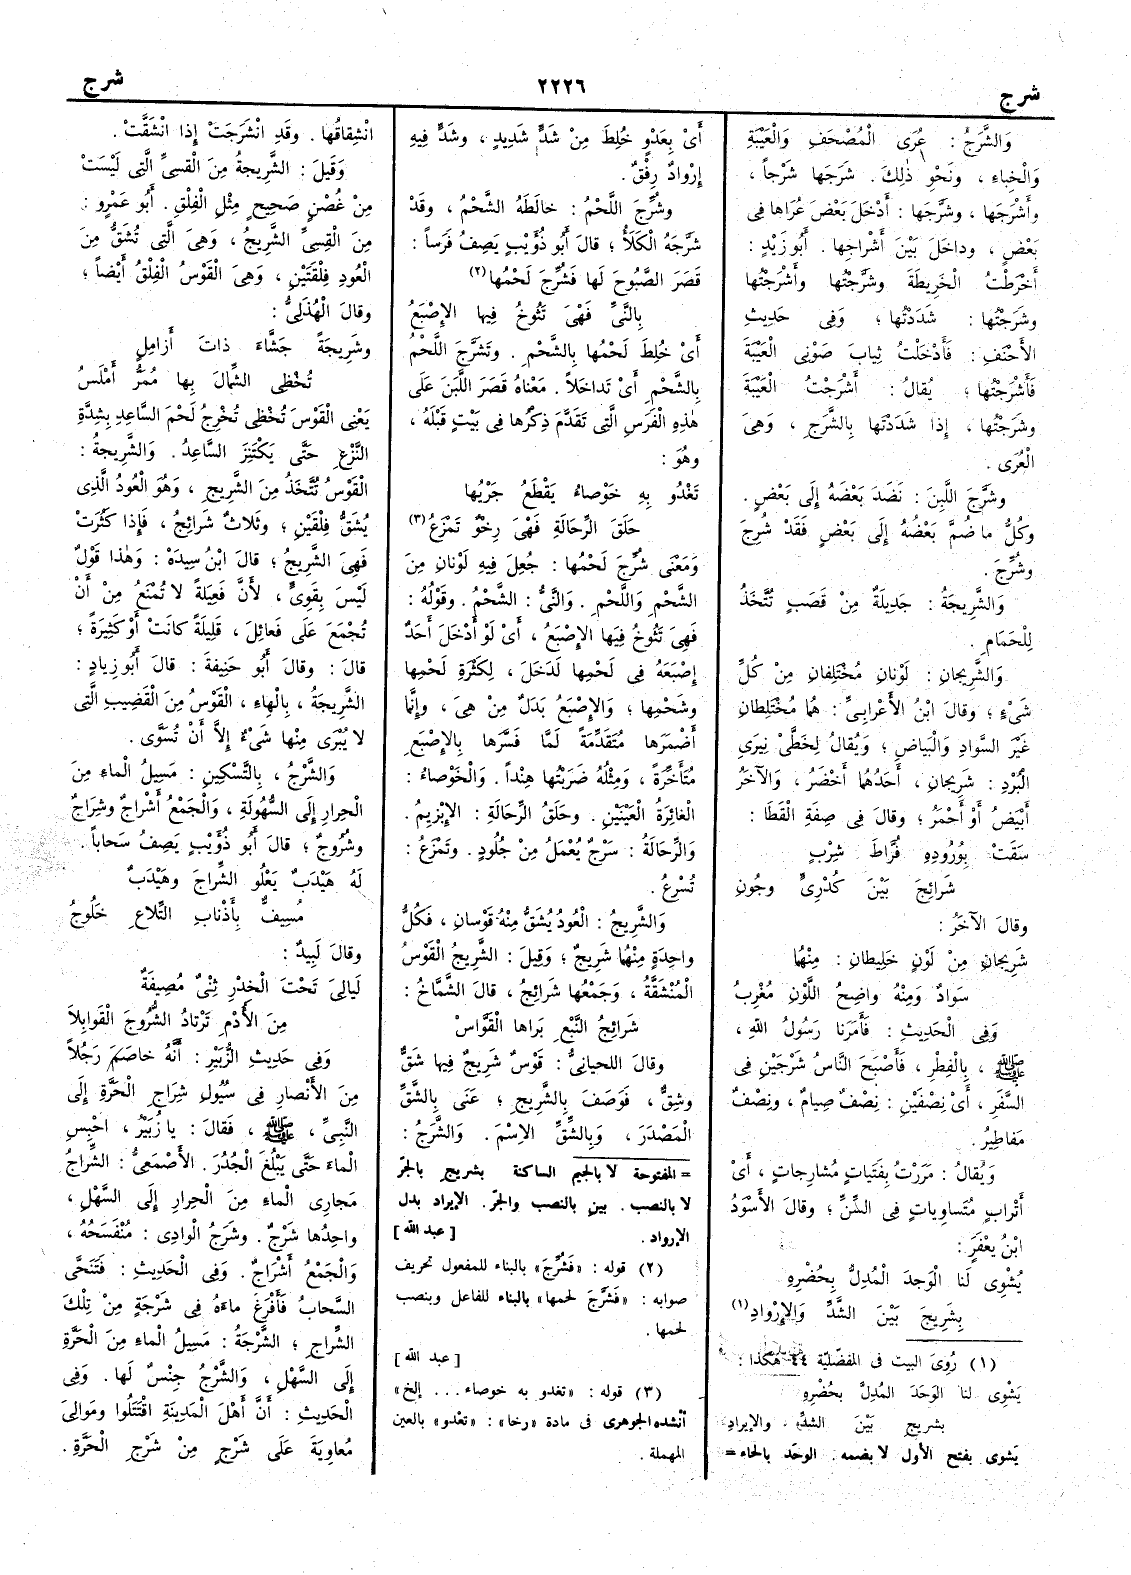 شرج
٢٢٢٦
شرج
وَالشَّرَجُ : عُرَى الْمُصْحَفِ وَالْعَيْبَةِ
وَالْخِباءِ ، وَنَحْوِ ذٰلِكَ . شَرَجَها شَرْجاً ،
وأَشْرَجَها ، وشَرَّجَها : أَدْخَلَ بَعْضَ عُراها فِى
بَعْضٍ ، وداخَلَ بَيْنَ أَشْراجِها . أَبُو زَيْدٍ :
أَخْرَطْتُ الْخَرِيطَةَ وشَرَّجْتُها وأَشْرَجْتُها
وشَرَجْتُها : شَدَدْتُها ؛ وَفِى حَدِيثِ
الأَحْنَفِ : فَأَدْخَلْتُ ثِيابَ صَوْنِى الْعَيْبَةَ
فَأَشْرَجْتُها ؛ يُقالُ : أَشْرَجْتُ الْعَيْبَةَ
وشَرَجْتُها ، إِذا شَدَدْتَها بِالشَّرَجِ ، وَهِىَ
الْعُرَى .
وشَرَّجَ اللَّبِنَ : نَضَدَ بَعْضَهُ إِلَى بَعْضٍ .
وكُلُّ ما ضُمَّ بَعْضُهُ إِلَى بَعْضٍ فَقَدْ شُرِجَ
وشُرِّجَ .
وَالشَّرِيجَةُ : جَدِيلَةٌ مِنْ قَصَبٍ تُتَّخَذُ
لِلْحَمَامِ .
وَالشَّرِيجانِ : لَوْنانِ مُخْتَلِفانِ مِنْ كُلِّ
شَىْءٍ ؛ وقالَ ابْنُ الأَعْرابِىِّ : هُما مُخْتَلِطانِ
غَيْرَ السَّوادِ وَالْبَياضِ ؛ وَيُقالُ لِخَطَّىْ نِيرَىِ
الْبُرْدِ : شَرِيجانِ ، أَحَدُهُما أَخْضَرُ ، وَالآخَرُ
أَبْيَضُ أَوْ أَحْمَرُ ؛ وقالَ فِى صِفَةِ الْقَطَا :
سَقَتْ بِوُرُودِهِ فُرَّاطَ شِرْبٍ
شَرائِجَ بَيْنَ كُدْرِىٍّ وجُونِ
وقالَ الآخَرُ :
شَرِيجانِ مِنْ لَوْنٍ خَلِيطانِ : مِنْهُما
سَوادٌ وَمِنْهُ واضِحُ اللَّوْنِ مُغْرِبُ
وَفِى الْحَدِيثِ : فَأَمَرَنا رَسُولُ اللهِ ،
ﷺ ، بِالْفِطْرِ ، فَأَصْبَحَ النَّاسُ شَرْجَيْنِ فِى
السَّفَرِ ، أَىْ نِصْفَيْنِ : نِصْفٌ صِيامٌ ، ونِصْفٌ
مَفاطِيرُ .
وَيُقالُ : مَرَرْتُ بِفَتَياتٍ مُشارِجاتٍ ، أَىْ
أَتْرابٍ مُتَساوِياتٍ فِى السِّنِّ ؛ وقالَ الأَسْوَدُ
ابْنُ يَعْفُرَ :
يُشْوِى لَنا الْوَحِدَ الْمُدِلَّ بِحُضْرِهِ
بِشَرِيجِ بَيْنَ الشَّدِّ وَالإِرْوادِ(١)
(١) رُوِىَ البيت فى المفضليّة ٤٤ هكذا :
يَشْوِى لنا الوَحَدَ المُدِلَّ بحُضْرِهِ
بشريجِ بَيْنَ الشدِّ ، والإيرادِ
يَشوى بفتح الأول لا بضمه . الوَحَد بالحاء =
أَىْ بِعَدْوٍ خُلِطَ مِنْ شَدٍّ شَدِيدٍ ، وشَدٍّ فِيهِ
إِرْوادُ رِفْقٌ .
وشُرِّجَ اللَّحْمُ : خالَطَهُ الشَّحْمُ ، وقَدْ
شَرَّجَهُ الْكَلَأُ ؛ قالَ أَبُو ذُؤَيْبٍ يَصِفُ فَرَساً :
قَصَرَ الصَّبُوحَ لَها فَشُرِّجَ لَحْمُها(٢)
بِالنَّىِّ فَهْىَ تَثُوخُ فِيها الإِصْبَعُ
أَىْ خُلِطَ لَحْمُها بِالشَّحْمِ . وتَشَرَّجَ اللَّحْمُ
بِالشَّحْمِ أَىْ تَداخَلاَ . مَعْناهُ قَصَرَ اللَّبَنَ عَلَى
هٰذِهِ الْفَرَسِ الَّتِى تَقَدَّمَ ذِكْرُها فِى بَيْتٍ قَبْلَهُ ،
وهُوَ :
تَغْدُو بِهِ خَوْصاءُ يَقْطَعُ جَرْيُها
حَلَقَ الرِّحالَةِ فَهْىَ رِخْوٌ تَمْزَعُ(٣)
وَمَعْنَى شُرِّجَ لَحْمُها : جُعِلَ فِيهِ لَوْنانِ مِنَ
الشَّحْمِ وَاللَّحْمِ . وَالنَّىُّ : الشَّحْمُ . وقَوْلُهُ :
فَهِىَ تَثُوخُ فِيهَا الإِصْبَعُ ، أَىْ لَوْ أَدْخَلَ أَحَدٌ
إِصْبَعَهُ فِى لَحْمِها لَدَخَلَ ، لِكَثْرَةِ لَحْمِها
وشَحْمِها ؛ وَالإِصْبَعُ بَدَلٌ مِنْ هِىَ ، وإِنَّما
أَضْمَرَها مُتَقَدِّمَةً لَمَّا فَسَّرَها بِالإِصْبَعِ
مُتَأَخِّرَةً ، وَمِثْلُهُ ضَرَبْتُها هِنْداً . وَالْخَوْصاءُ :
الْغائِرَةُ الْعَيْنَيْنِ . وحَلَقُ الرِّحالَةِ : الإِبْزِيمُ .
وَالرِّحالَةُ : سَرْجٌ يُعْمَلُ مِنْ جُلُودٍ . وتَمْزَعُ :
تُسْرِعُ .
وَالشَّرِيجُ : الْعُودُ يُشَقُّ مِنْهُ قَوْسانِ ، فَكُلُّ
واحِدَةٍ مِنْهُما شَرِيجٌ ؛ وَقِيلَ : الشَّرِيجُ الْقَوْسُ
الْمُنْشَقَّةُ ، وَجَمْعُها شَرائِجُ ، قالَ الشَّمَّاخُ :
شَرائِجُ النَّبْعِ بَراها الْقَوَّاسْ
وقالَ اللحيانِىُّ : قَوْسٌ شَرِيجٌ فِيها شَقٌّ
وشِقٌّ ، فَوَصَفَ بِالشَّرِيجِ ؛ عَنَى بِالشَّقِّ
الْمَصْدَرَ ، وَبِالشِّقِّ الاِسْمَ . وَالشَّرَجُ :
= المفتوحة لا بالجيم الساكنة بشريج بالجرّ
لا بالنصب . بين بالنصب والجرّ . الإيراد بدل
الإرواد .
[عبد الله]
(٢) قوله : «فَشُرِّجَ» بالبناء للمفعول تحريف
صوابه : «فشَرَّجَ لحمها» بالبناء للفاعل وبنصب
لحمها .
[عبد الله]
(٣) قوله : «تغدو به خوصاء ... إلخ»
أنشده الجوهرى فى مادة «رخا» : «تعْدو» بالعين
المهملة .
انْشِقاقُها . وقَدِ انْشَرَجَتْ إِذا انْشَقَّتْ .
وَقِيلَ : الشَّرِيجَةُ مِنَ الْقِسِىِّ الَّتِى لَيْسَتْ
مِنْ غُصْنٍ صَحِيحٍ مِثْلِ الْفِلْقِ . أَبُو عَمْرٍو :
مِنَ الْقِسِىِّ الشَّرِيجُ ، وَهِىَ الَّتِى تُشَقُّ مِنَ
الْعُودِ فِلْقَتَيْنِ ، وَهِىَ الْقَوْسُ الْفِلْقُ أَيْضاً ؛
وقالَ الْهُذَلِىُّ :
وشَرِيجَةٌ جَشَّاءُ ذاتُ أَزامِلٍ
تُخْظِى الشِّمالَ بِها مُمَرٌّ أَمْلَسُ
يَعْنِى الْقَوْسَ تُخْظِى تُخْرِجُ لَحْمَ السَّاعِدِ بِشِدَّةِ
النَّزْعِ حَتَّى يَكْتَنِزَ السَّاعِدُ . وَالشَّرِيجَةُ :
الْقَوْسُ تُتَّخَذُ مِنَ الشَّرِيجِ ، وَهُوَ الْعُودُ الَّذِى
يُشَقُّ فِلْقَيْنِ ؛ وثَلاثُ شَرائِجَ ، فَإِذا كَثُرَتْ
فَهِىَ الشَّرِيجُ ؛ قالَ ابْنُ سِيدَهْ : وَهٰذا قَوْلٌ
لَيْسَ بِقَوِىٍّ ، لأَنَّ فَعِيلَةً لا تُمْنَعُ مِنْ أَنْ
تُجْمَعَ عَلَى فَعائِلَ ، قَلِيلَةً كانَتْ أَوْ كَثِيرَةً ؛
قالَ : وقالَ أَبُو حَنِيفَةَ : قالَ أَبُو زِيادٍ :
الشَّرِيجَةُ ، بِالْهاءِ ، الْقَوْسُ مِنَ الْقَضِيبِ الَّتِى
لا يُبْرَى مِنْها شَىْءٌ إِلاَّ أَنْ تُسَوَّى .
وَالشَّرْجُ ، بِالتَّسْكِينِ : مَسِيلُ الْماءِ مِنَ
الْحِرارِ إِلَى السُّهُولَةِ ، وَالْجَمْعُ أَشْراجٌ وشِراجٌ
وشُرُوجٌ ؛ قالَ أَبُو ذُؤَيْبٍ يَصِفُ سَحاباً .
لَهُ هَيْدَبٌ يَعْلُو الشِّراجَ وهَيْدَبٌ
مُسِيفٌ بِأَذْنابِ التِّلاعِ خَلُوجُ
وقالَ لَبِيدٌ :
لَيالِىَ تَحْتَ الْخِدْرِ ثِنْىُ مُصِيفَةٌ
مِنَ الأُدْمِ تَرْتادُ الشُّرُوجَ الْقَوابِلاَ
وَفِى حَدِيثِ الزُّبَيْرِ : أَنَّهُ خاصَمَ رَجُلاً
مِنَ الأَنْصارِ فِى سُيُولِ شِراجِ الْحَرَّةِ إِلَى
النَّبِىِّ ، ﷺ ، فَقالَ : يا زُبَيْرُ ، احْبِسِ
الْماءَ حَتَّى يَبْلُغَ الْجُدُرَ . الأَصْمَعِىُّ : الشِّراجُ
مَجارِى الْماءِ مِنَ الْحِرارِ إِلَى السَّهْلِ ،
واحِدُها شَرْجٌ . وشَرَجُ الْوادِى : مُنْفَسَحُهُ ،
وَالْجَمْعُ أَشْراجٌ . وَفِى الْحَدِيثِ : فَتَنَحَّى
السَّحابُ فَأَفْرَغَ ماءَهُ فِى شَرْجَةٍ مِنْ تِلْكَ
الشِّراجِ ؛ الشَّرْجَةُ : مَسِيلُ الْماءِ مِنَ الْحَرَّةِ
إِلَى السَّهْلِ ، وَالشَّرْجُ جِنْسٌ لَها . وَفِى
الْحَدِيثِ : أَنَّ أَهْلَ الْمَدِينَةِ اقْتَتَلُوا ومَوالِىَ
مُعاوِيَةَ عَلَى شَرْجٍ مِنْ شَرْجِ الْحَرَّةِ .